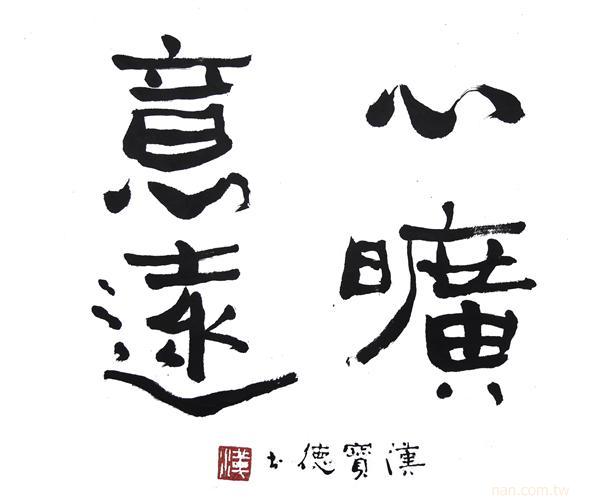 心曠
意遠
漢寶德书
漢
nan.com.tw